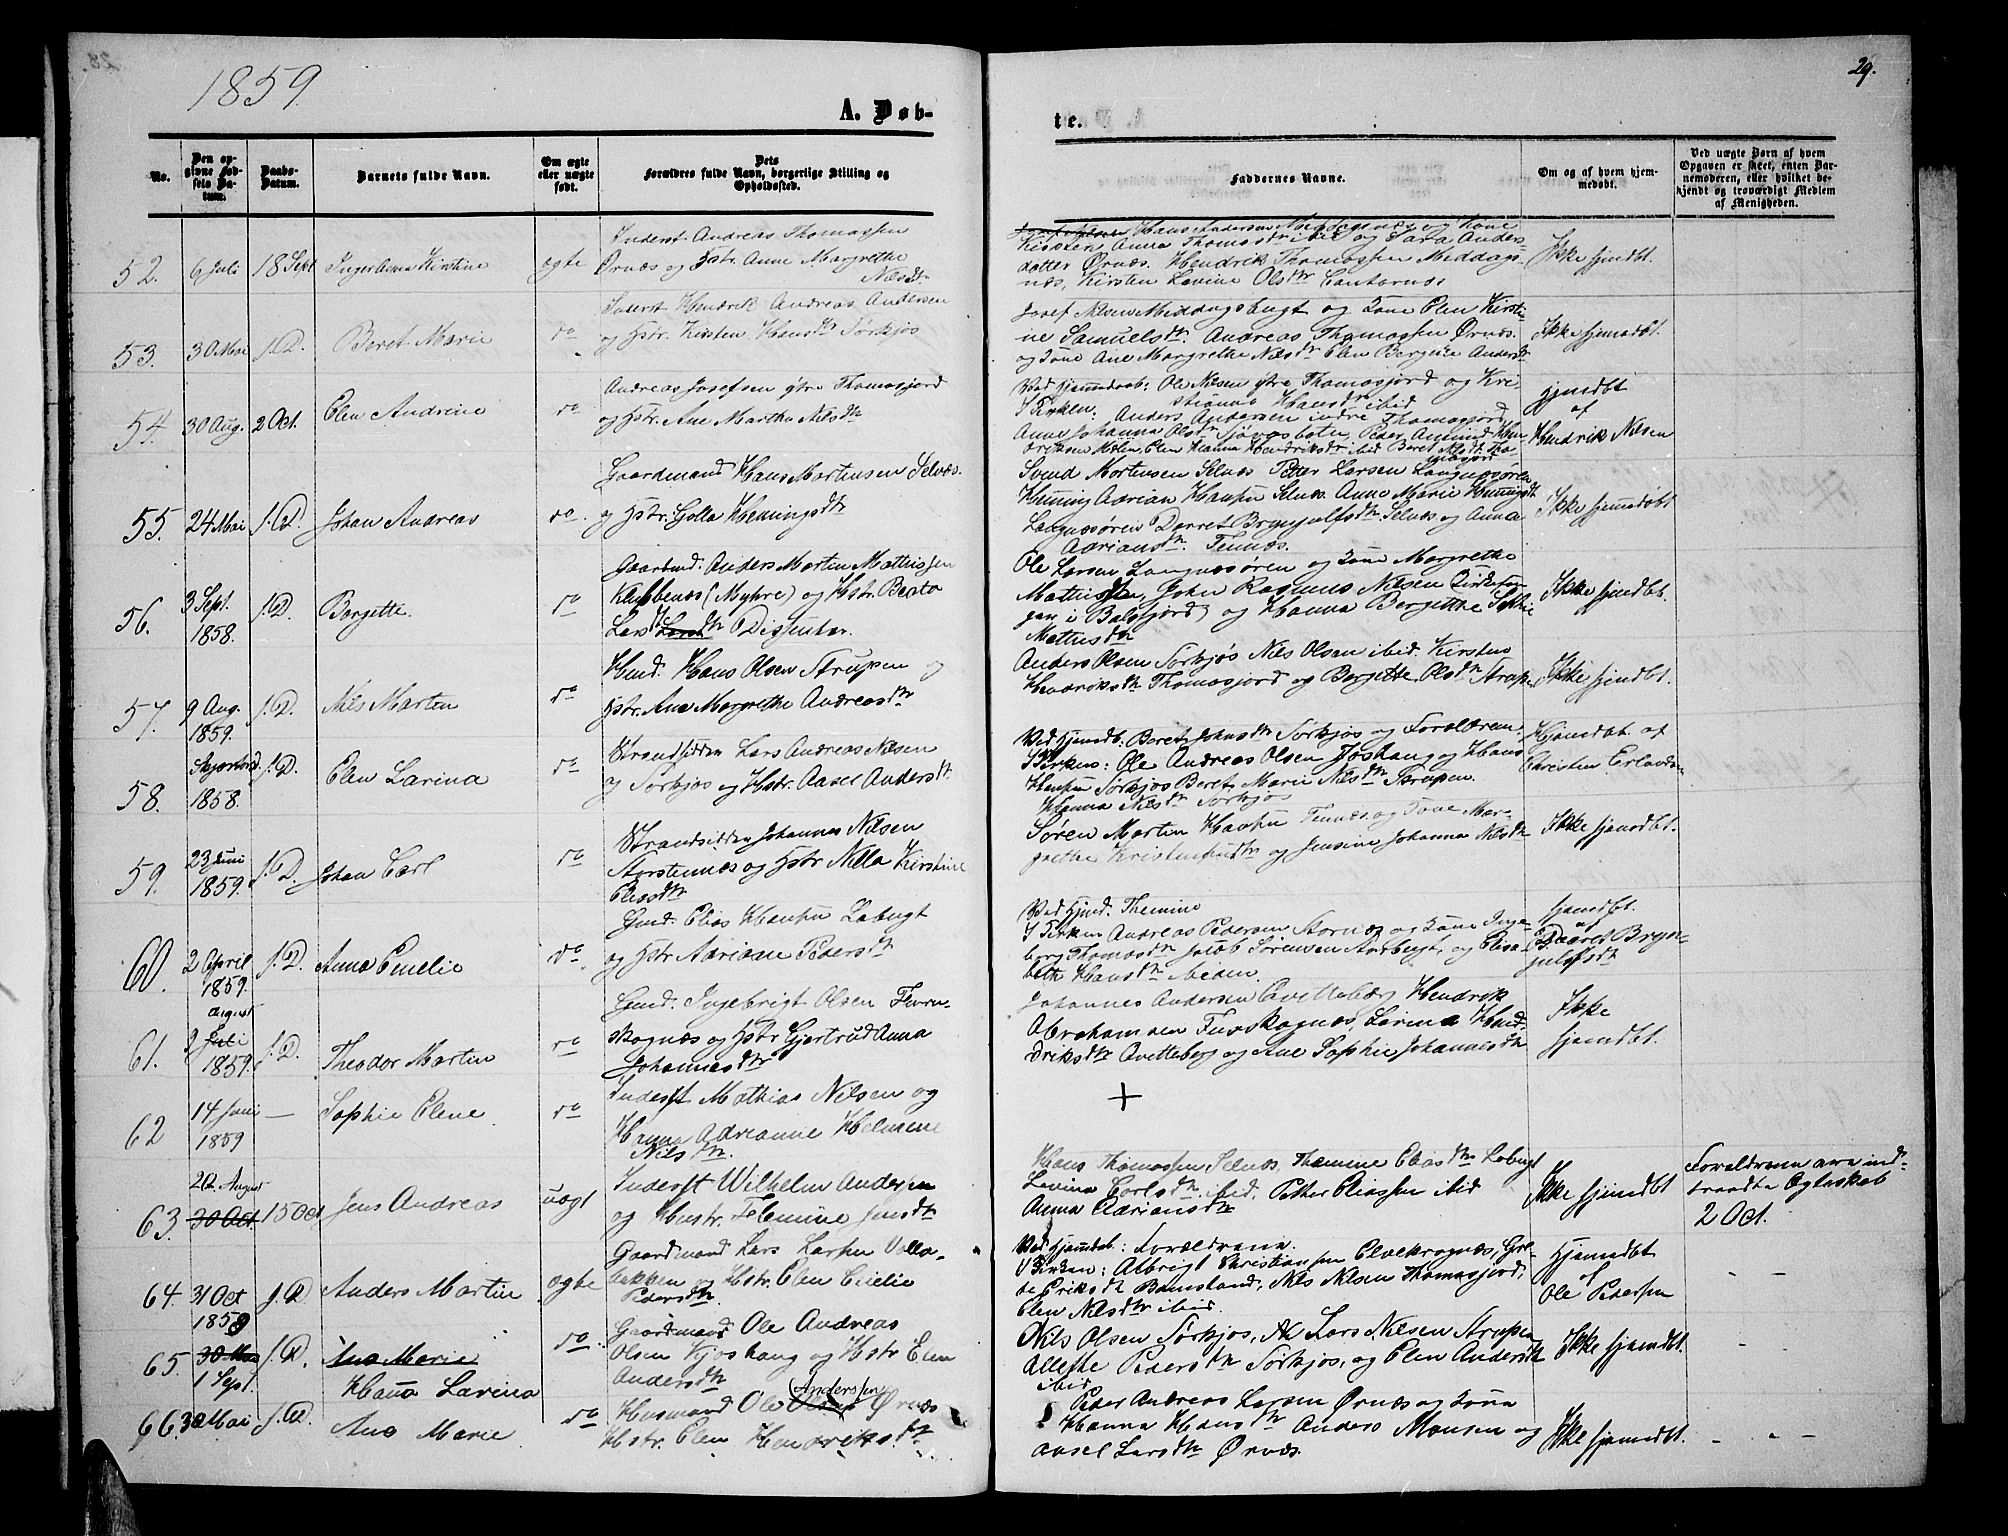 1859.
29.
A. Døb-
te.
No.
Den op-
givne Fød-
sels Da-
tum.
Daabs-
Datum.
Barnets fulde Navn.
Om ægte
eller uægte
født.
Dets
Forældres fulde Navn, borgerlige Stilling og
Opholdssted.
Faddernes Navne.
Om og af hvem hjem-
medøbt.
Ved uægte Børn af hvem
Opgaven er skeet, enten Bar-
nemoderen, eller hvilket be-
kjendt og troværdigt Medlem
af Menigheden.
52. 6 Juli 18 Sept Inger Anna Kirstine ægte
Inderst Andreas Thomassen
Ørnæs og Hstr. Anne Margrethe
Nilsdr.
Kirsten Anna Thomasdtr ibid og Sara Anders-
datter Ørnæs. Hendrik Thomassen Meddags-
næs, Kirsten Lovine Olsdtr Cantornæs
Ikke hjemdbt.
53. 30 Mai s.D. Beret Marie do
Inderst Hendrik Andreas Andersen
og Hstr. Kirsten Hansdtr Sørkjos
Josef Nilsen Meddagsbugt og Kone Elen Kirsti-
ne Samuelsdtr. Andreas Thomassen Ørnæs
og Kone Ane Margrethe Nilsdtr Elen Bergitte Andersdtr
Ikke hjemdbt.
54. 30 Aug. 2 Oct. Elen Andrine do
Andreas Josefsen ytre Thomasjord
og Hstr. Ane Martha Nilsdtr
Ved Hjemdaab: Ole Nilsen ytre Thomasjord og Kri-
stianna Hansdtr ibid
I Kirken: Anders Andersen indre Thomasjord,
Anne Johanna Olsdtr Sjøvasbotn, Peder Amund Hen-
driksen Kilen, Elen Hanna Hendriksdtr ibid Beret Nilsdtr Tho-
masjord
hjemdbt
af
Hendrik Nilsen
55. 24 Mai s.D. Johan Andreas do.
Gaardmand Hans Mortensen Selnæs
og Hstr. Golla Hemingsdtr
Svend Mortensen Selnæs Peter Larsen Langnæsøren
Heming Adrian Hansen Selnæs. Anne Marie Hemingsdtr
Langnæsøren Dorret Brynjulfsdtr Selnæs og Anna
Adriansdtr. Tennæs.
Ikke hjemdøbt
56. 3 Sept. 1858. s.D. Bergette do
Gaardmd. Anders Morten Mathissen
Klubbenæs (Myhre) og Hstr. Berta
Larsdtr Dissenter.
Ole Larsen Langnæsøren og Kone Margrethe
Mathisdtr, John Rasmus Nilsen Kirkesan-
ger i Balsfjord og Hanna Bergitthe Sophie
Mathisdtr
Ikke hjemdbt.
57. 9 Aug. 1859. s.D. Nils Martin do
Hmd. Hans Olsen Strupen og
Hstr. Ane Margrethe Andreasdtr
Anders Olsen Sørkjos Nils Olsen ibid. Kirsten
Hendriksdtr Thomasjord og Bergette Olsdtr Strupen
Ikke hjemdbt.
58. 1858. s.D. Elen Larina do
Strandsidder Lars Andreas Nilsen
Sørkjos og Hstr. Aasel Andersdtr.
Ved Hjemdb. Beret Johnsdtr Sørkjos og Forældrene.
I Kirken: Ole Andreas Olsen Joshaug og Hans
Hansen Sørkjos Beret Marie Nilsdtr Strupen
Hanna Nilsdtr Sørkjos
Hjemdbt af
Christen Erlands-
59. 23 Juni 1859. s.D. Johan Carl do
Strandsidder Johannes Nilsen
Storstennæs og Hstr Nilla Kirstine
Eliasdtr
Søren Martin Hansen Tennæs og Kone Mar-
grethe Kristensdtr og Jensine Johanna Nilsdtr
Ikke hjemdbt.
60. 2 April 1859. s.D. Anna Emilie do
Gmd. Elias Hansen Labugt
og Hstr. Adriane Pedersdtr
Ved Hjmd. Themine
I Kirken Andreas Pedersen Stornæs og Kone Inge-
borg Thomasdtr Jacob Sørensen Aarbergt, og Elisa-
beth Hansdtr ibidem
hjemdbt.
af
Daaret Bryn-
julfsdtr
61. 2 Juli August 1859. s.D. Theodor Martin do
Gmd. Ingebrigt Olsen Furu-
skognæs og Hstr Gjertrud Anna
Johannesdtr
Johannes Andersen Qvitteberg Hendrik
Abrahamsen Fuxskognæs, Larina Hend-
driksdtr Qvitteberg og Ane Sophie Johannesdtr
Ikke
hjemdbt.
62 14 Juni 1859 — Sophie Elene do
Inderst Mathias Nilsen og
Hanna Adrianne Helmine
Nilsdtr.
+
63. 20 August 30 Oct 15 Oct Jens Andreas uægt
Inderst Wilhelm Andersen
og Hustr. Themine Jensdtr
Hans Thomassen Selnæs, Themine Eliasdtr Labugt
Lavina Carlsdtr ibid. Petter Eliassen ibid
Anna Adriansdtr
Ikke hjemdbt
Forældrene ere ind-
traadte Egteskab
2 Oct.
64. 31 Oct 1858 s.D. Anders Martin ægte
Gaardmand Lars Larsen Volla-
bakken og Hstr. Elen Emilie
Pedersdtr.
Ved Hjemdøb.: Forældrene.
I Kirken: Albrigt Christiansen Elvekrognæs, Gre-
te Eriksdtr Bomstand, Nils Nilsen Thomasjord,
Elen Nilsdtr ibid.
Hjemedbt
af
Ole Pedersen
65. 30 Mai 1 Sept. s.D. Ane Marie Hana Lavina do
Gaardmand Ole Andreas
Olsen Kjoshaug og Hstr Elen
Andersdtr
Nils Olsen Sørkjos, Lars Nilsen Strupen
Allethe Pedersdtr Sørkjos, og Elen Andersdtr
ibid
Ikke hjemdbt.
66. 30 Mai s.D. Ane Marie do
Husmand Ole Olsen (Anderssen) Ørnæs
Hstr. Elen Hendriksdtr
Peder Andreas Larsen Ørnæs og Kone
Hanna Hansdtr Anders Monsen og
Aasel Larsdtr Ørnæs.
Ikke hjemedbt.